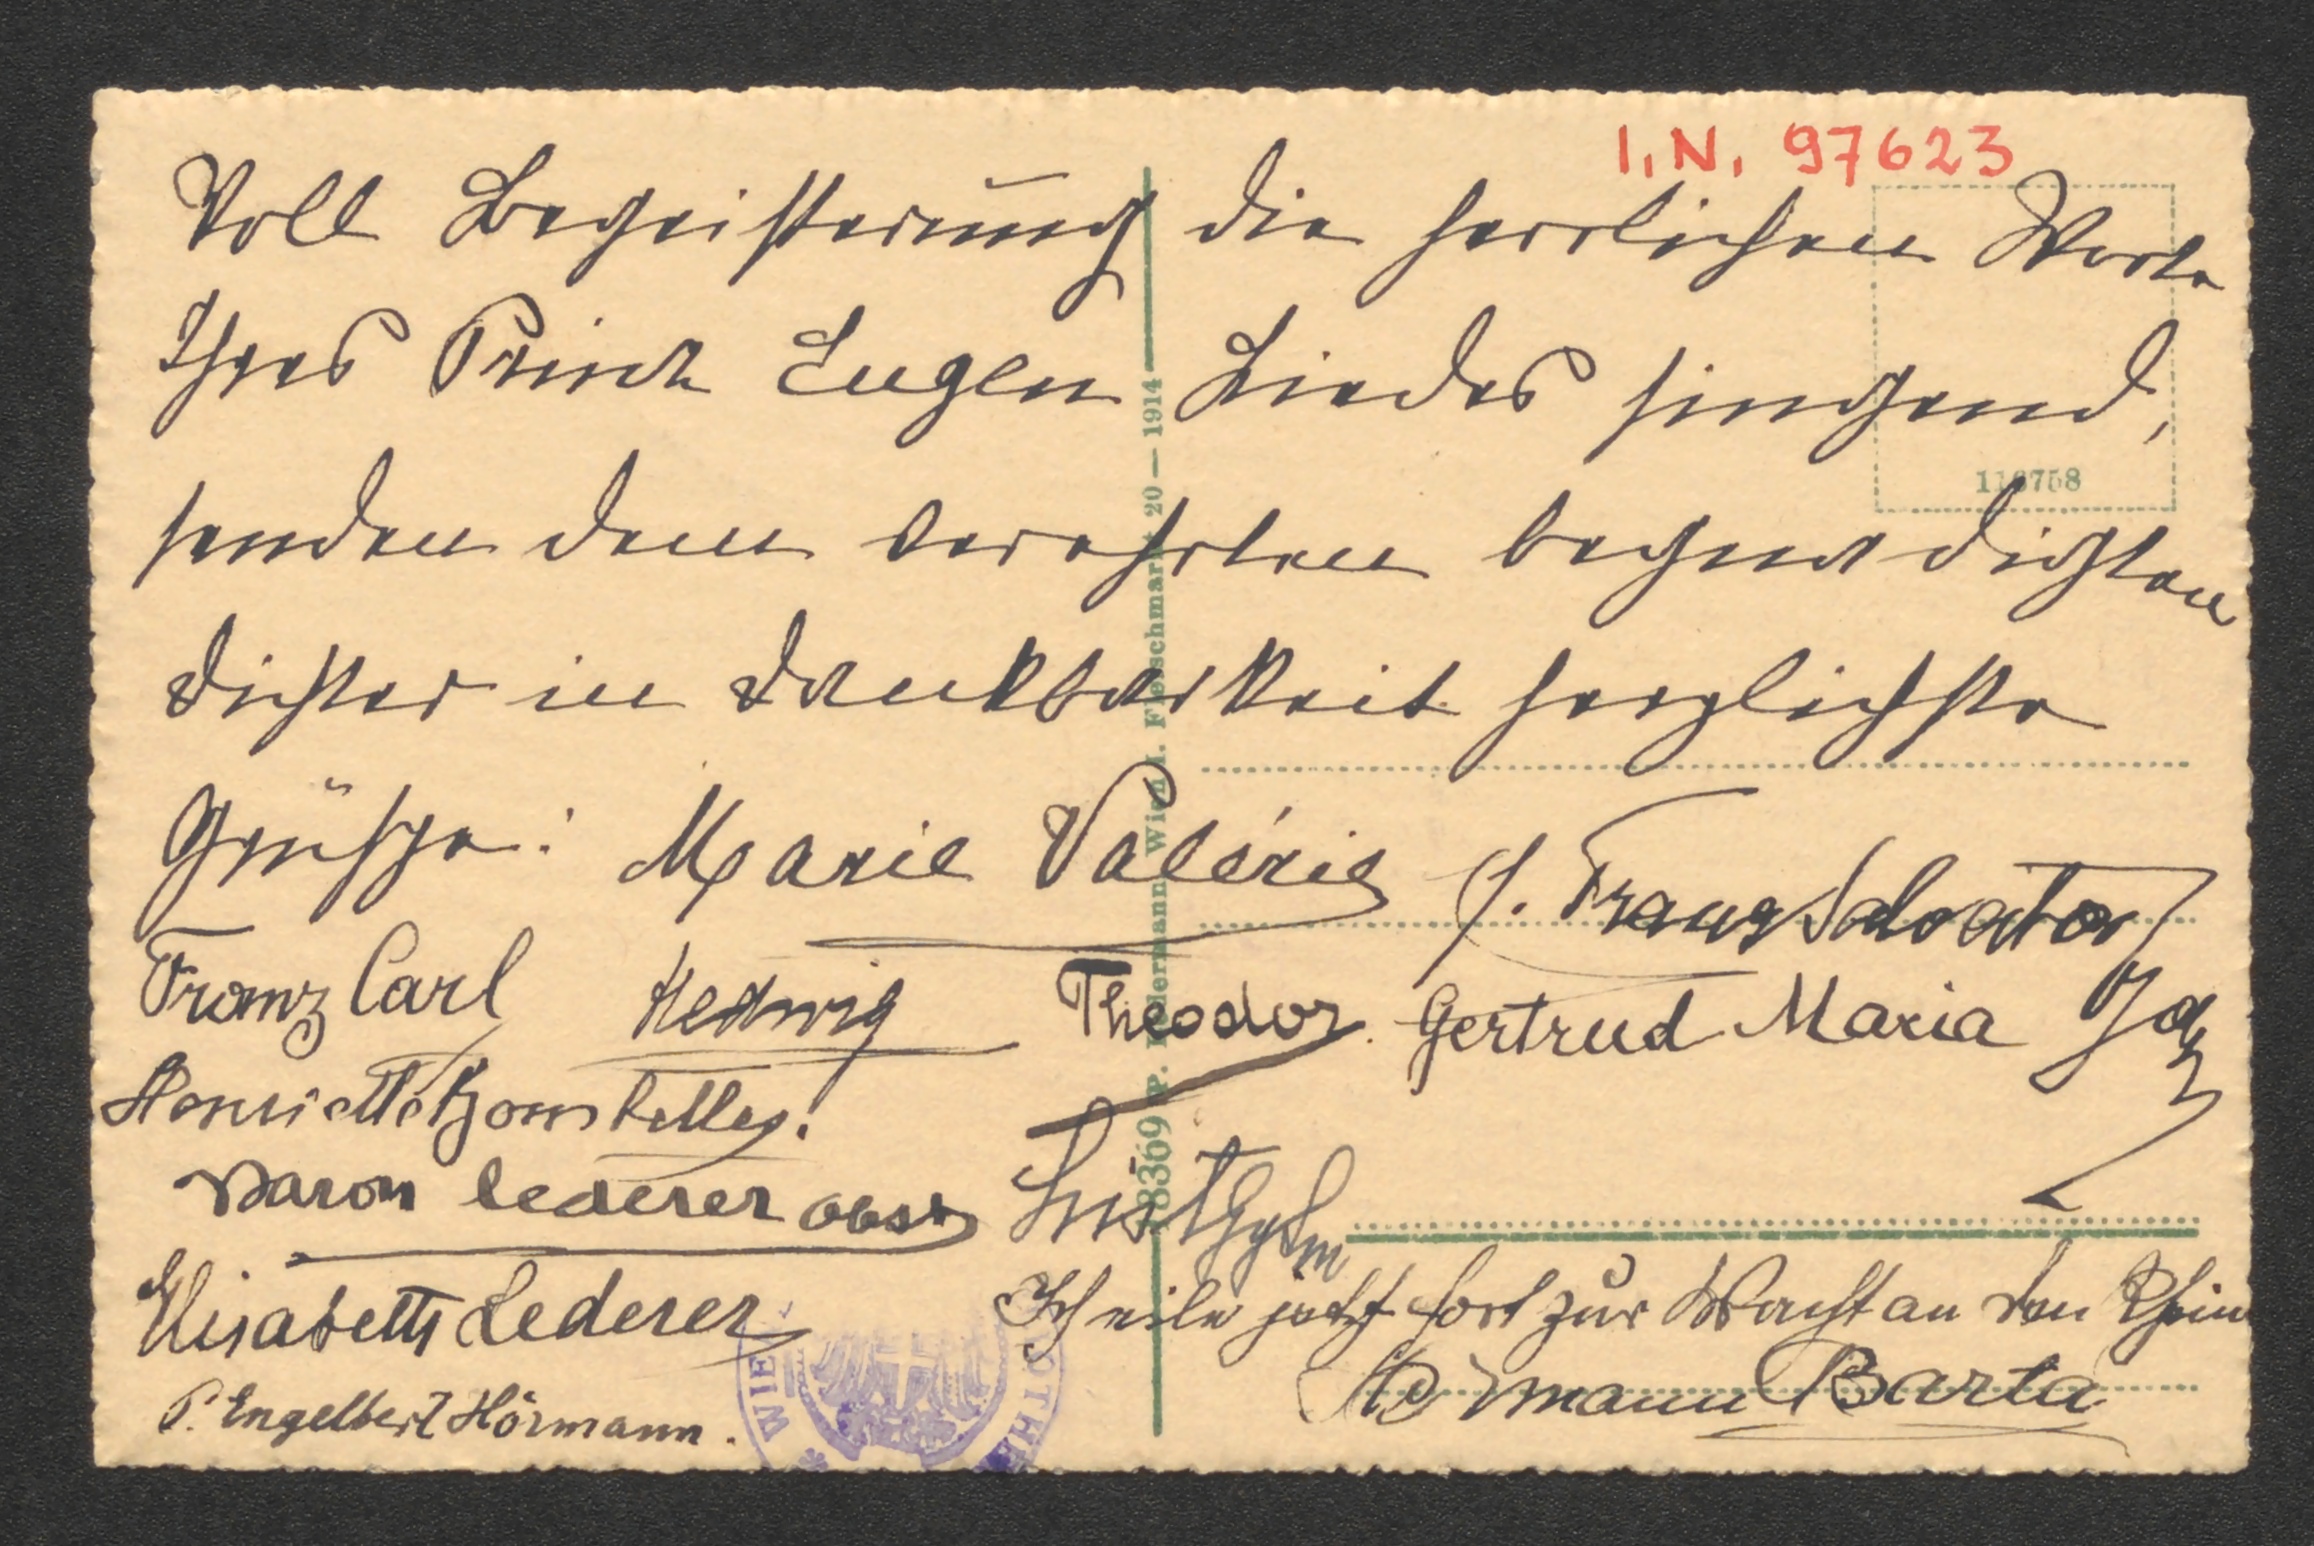 I. N. 97623
Voll Begeisterung die herrlichen Worte
Ihres Prinz Eugen Liedes singend,
senden dem verehrten begnadigten
Dichter in Dankbarkeit herzlichste
Grüße: Marie Valérie Franz Salvator
Franz Carl Hedwig Theodor Gertrud Maria
Henriette
Baron Lederer Obst
Elisabeth Lederer
Ich eile jetzt fort zur Wacht an den Rhein
Hermann Barta
P. Engelbert Hörmann.
116758
18369 P. Ledermann Wien I. Fleischmarkt 20 — 1914
WIE
OTHE